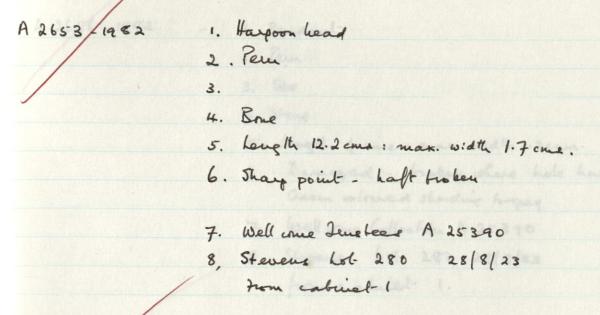 A 2653-1982 1. Harpoon head
2. Peru
3.
4. Bone
5. Length 12.2cms: max. width 1.7cms.
6. Sharp point - haft broken
7. Wellcome Trustees A 25390
8, Stevens Lot 280 28/8/23
From cabinet 1